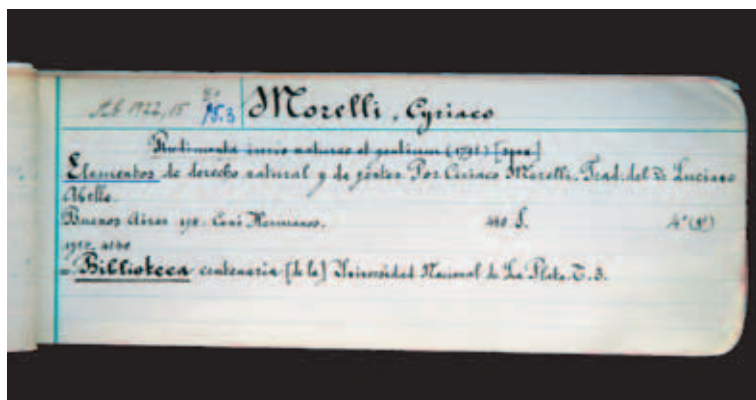 Ab 1922, 15 Morelli, Cyriaco
Rudimenta iuris naturae et gentium (1791)
Elementos de derecho natural y de gentes. Por Ciriaco Morelli. Trad. del Dr Luciano
Abeille.
Buenos Aires Coni Hermanos. S. 4° (8°)
= Biblioteca centenaria [de la] Universidad Nacional de La Plata. T. 3.